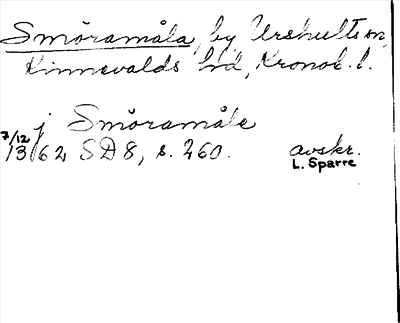 Smöramåla, by Urshults sn,
Kinnevalds hd, Kronob. l.
j Smöramåle
7/12 1362 SD 8, s. 260. avskr.
L. Sparre